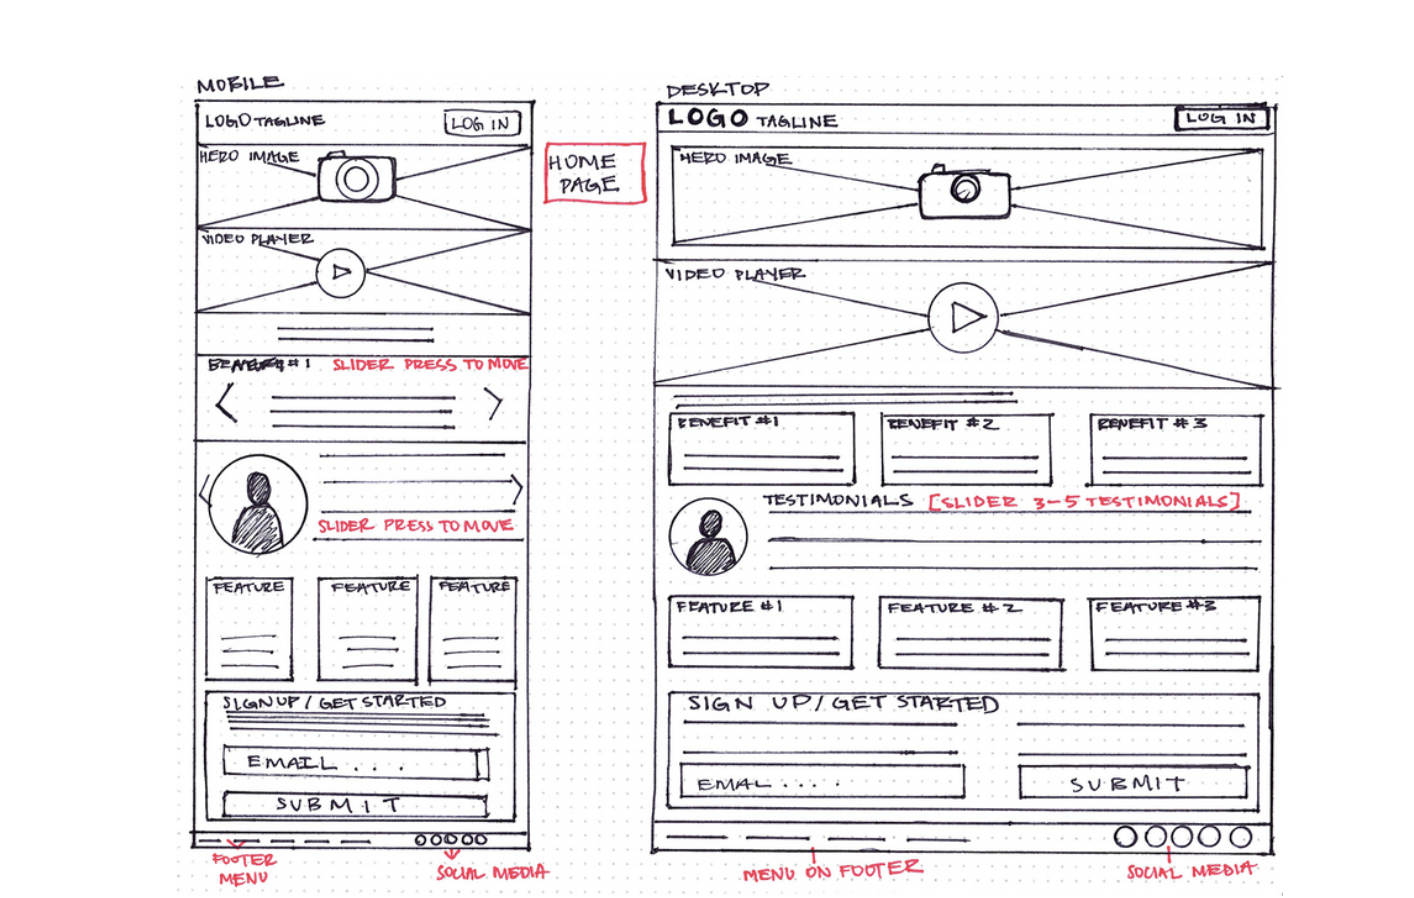 MOBILE
LOGO TAGLINE
LOG IN
HERO IMAGE
VIDEO PLAYER
#1 SLIDER PRESS TO MOVE
SLIDER PRESS TO MOVE
FEATURE
FEATURE
FEATURE
SIGNUP / GET STARTED
EMAIL . . . .
SUBMIT
FOOTER
MENU
SOCIAL MEDIA
HOME
PAGE
DESKTOP
LOGO TAGLINE
LOG IN
HERO IMAGE
VIDEO PLAYER
BENEFIT #1
BENEFIT #2
BENEFIT #3
TESTIMONIALS [SLIDER 3-5 TESTIMONIALS]
FEATURE #1
FEATURE #2
FEATURE #3
SIGN UP / GET STARTED
EMAL . . . .
SUBMIT
MENU ON FOOTER
SOCIAL MEDIA